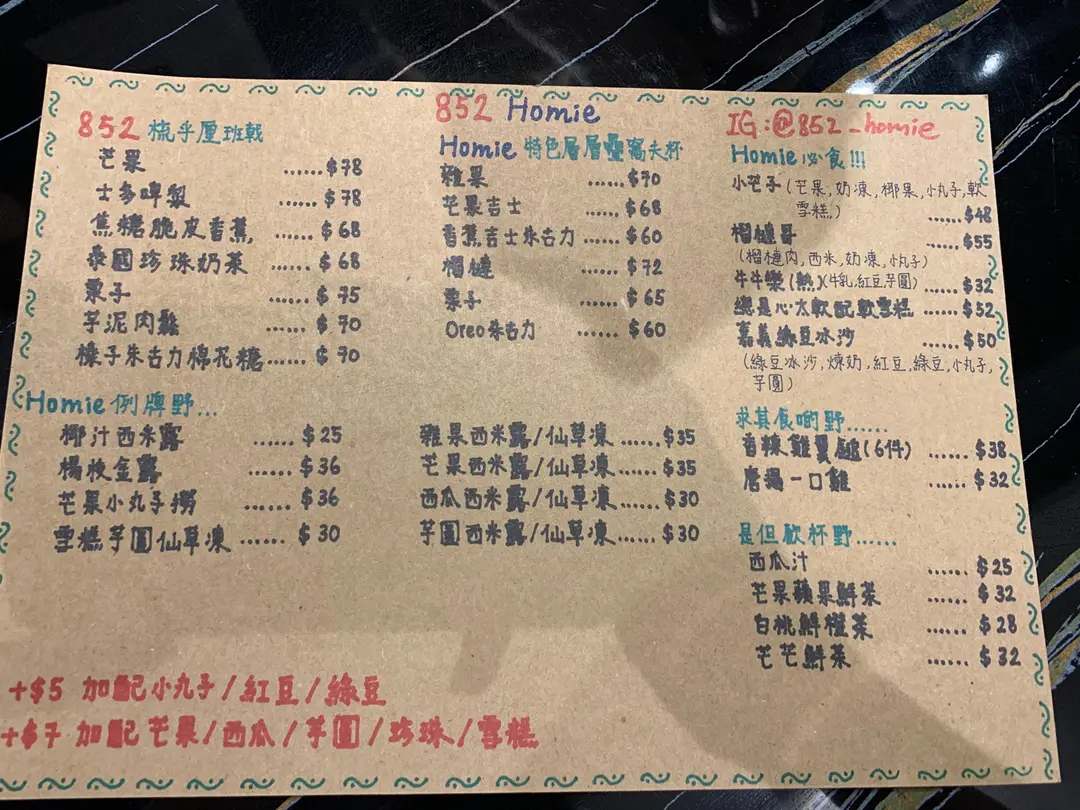 852 Homie
852 梳乎厘班戟
芒果 ......$78
士多啤梨 ......$78
焦糖脆皮香蕉 ......$68
泰國珍珠奶茶 ......$68
栗子 ......$75
芋泥肉鬆 ......$70
榛子朱古力棉花糖......$70
Homie 特色層層疊窩夫杯
雜果 ......$70
芒果吉士 ......$68
香蕉吉士朱古力 ......$60
榴槤 ......$72
栗子 ......$65
Oreo朱古力 ......$60
IG:@852_homie
Homie必食!!!
小芒子(芒果,奶凍,椰果,小丸子,軟
雪糕) ......$48
榴槤哥 ......$55
(榴槤肉,西米,奶凍,小丸子)
牛牛樂(熱)(牛乳,紅豆,芋圓) ......$32
總是心太軟配軟雪糕 ......$52
嘉義綠豆冰沙 ......$50
(綠豆冰沙,煉奶,紅豆,綠豆,小丸子,
芋圓)
Homie 例牌野...
椰汁西米露 ......$25
楊枝金露 ......$36
芒果小丸子撈 ......$36
雪糕芋圓仙草凍 ......$30
雜果西米露/仙草凍 ......$35
芒果西米露/仙草凍......$35
西瓜西米露/仙草凍......$30
芋圓西米露/仙草凍......$30
求其食啲野......
香辣雞翼(6件) ......$38
唐揚一口雞 ......$32
是但飲杯野......
西瓜汁 ......$25
芒果蘋果鮮茶 ......$32
白桃鮮橙茶 ......$28
芒芒鮮茶 ......$32
+$5 加配小丸子/紅豆/綠豆
+$7 加配芒果/西瓜/芋圓/珍珠/雪糕